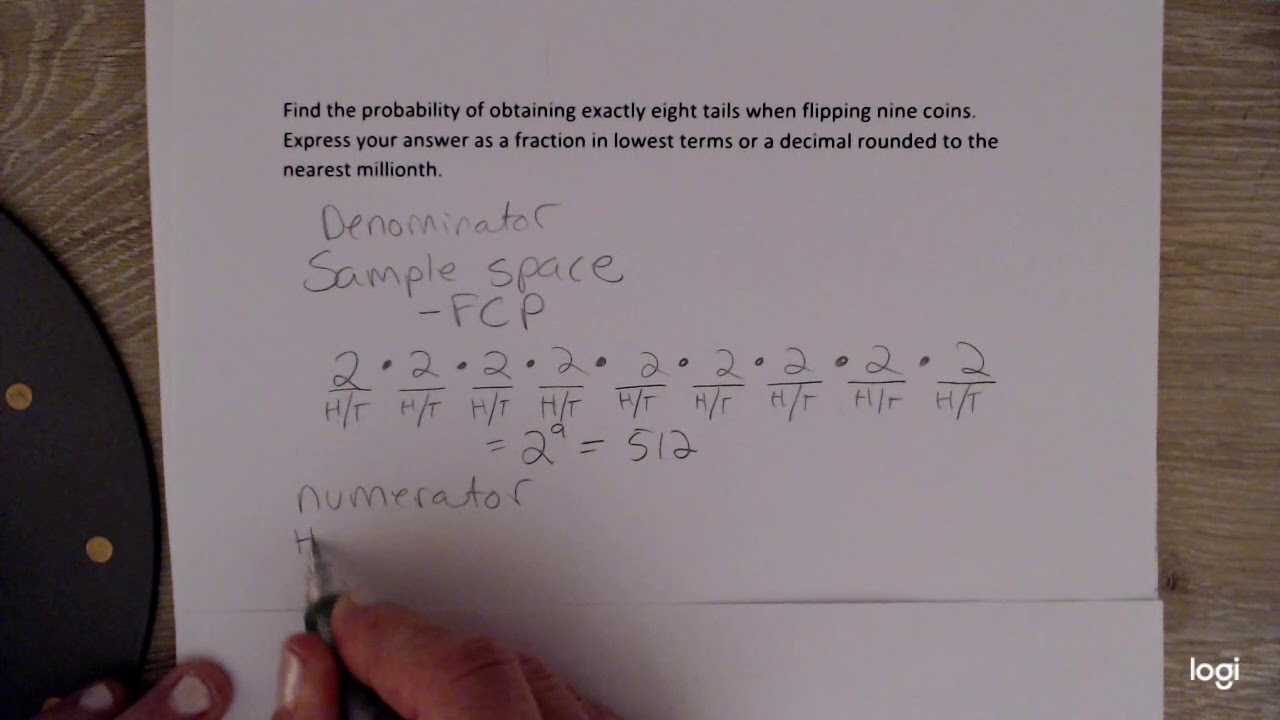 Find the probability of obtaining exactly eight tails when flipping nine coins.
Express your answer as a fraction in lowest terms or a decimal rounded to the
nearest millionth.
Denominator
Sample space
- FCP
2 • 2 • 2 • 2 • 2 • 2 • 2 • 2 • 2
H/T H/T H/T H/T H/T H/T H/T H/T H/T
= 2⁹ = 512
numerator
H
logi